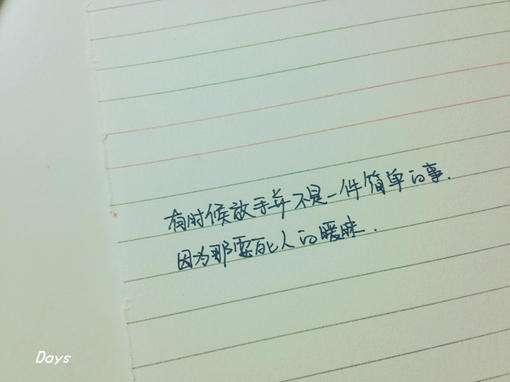 有时候放手并不是一件简单的事.
因为那要死人的暧昧.
Days